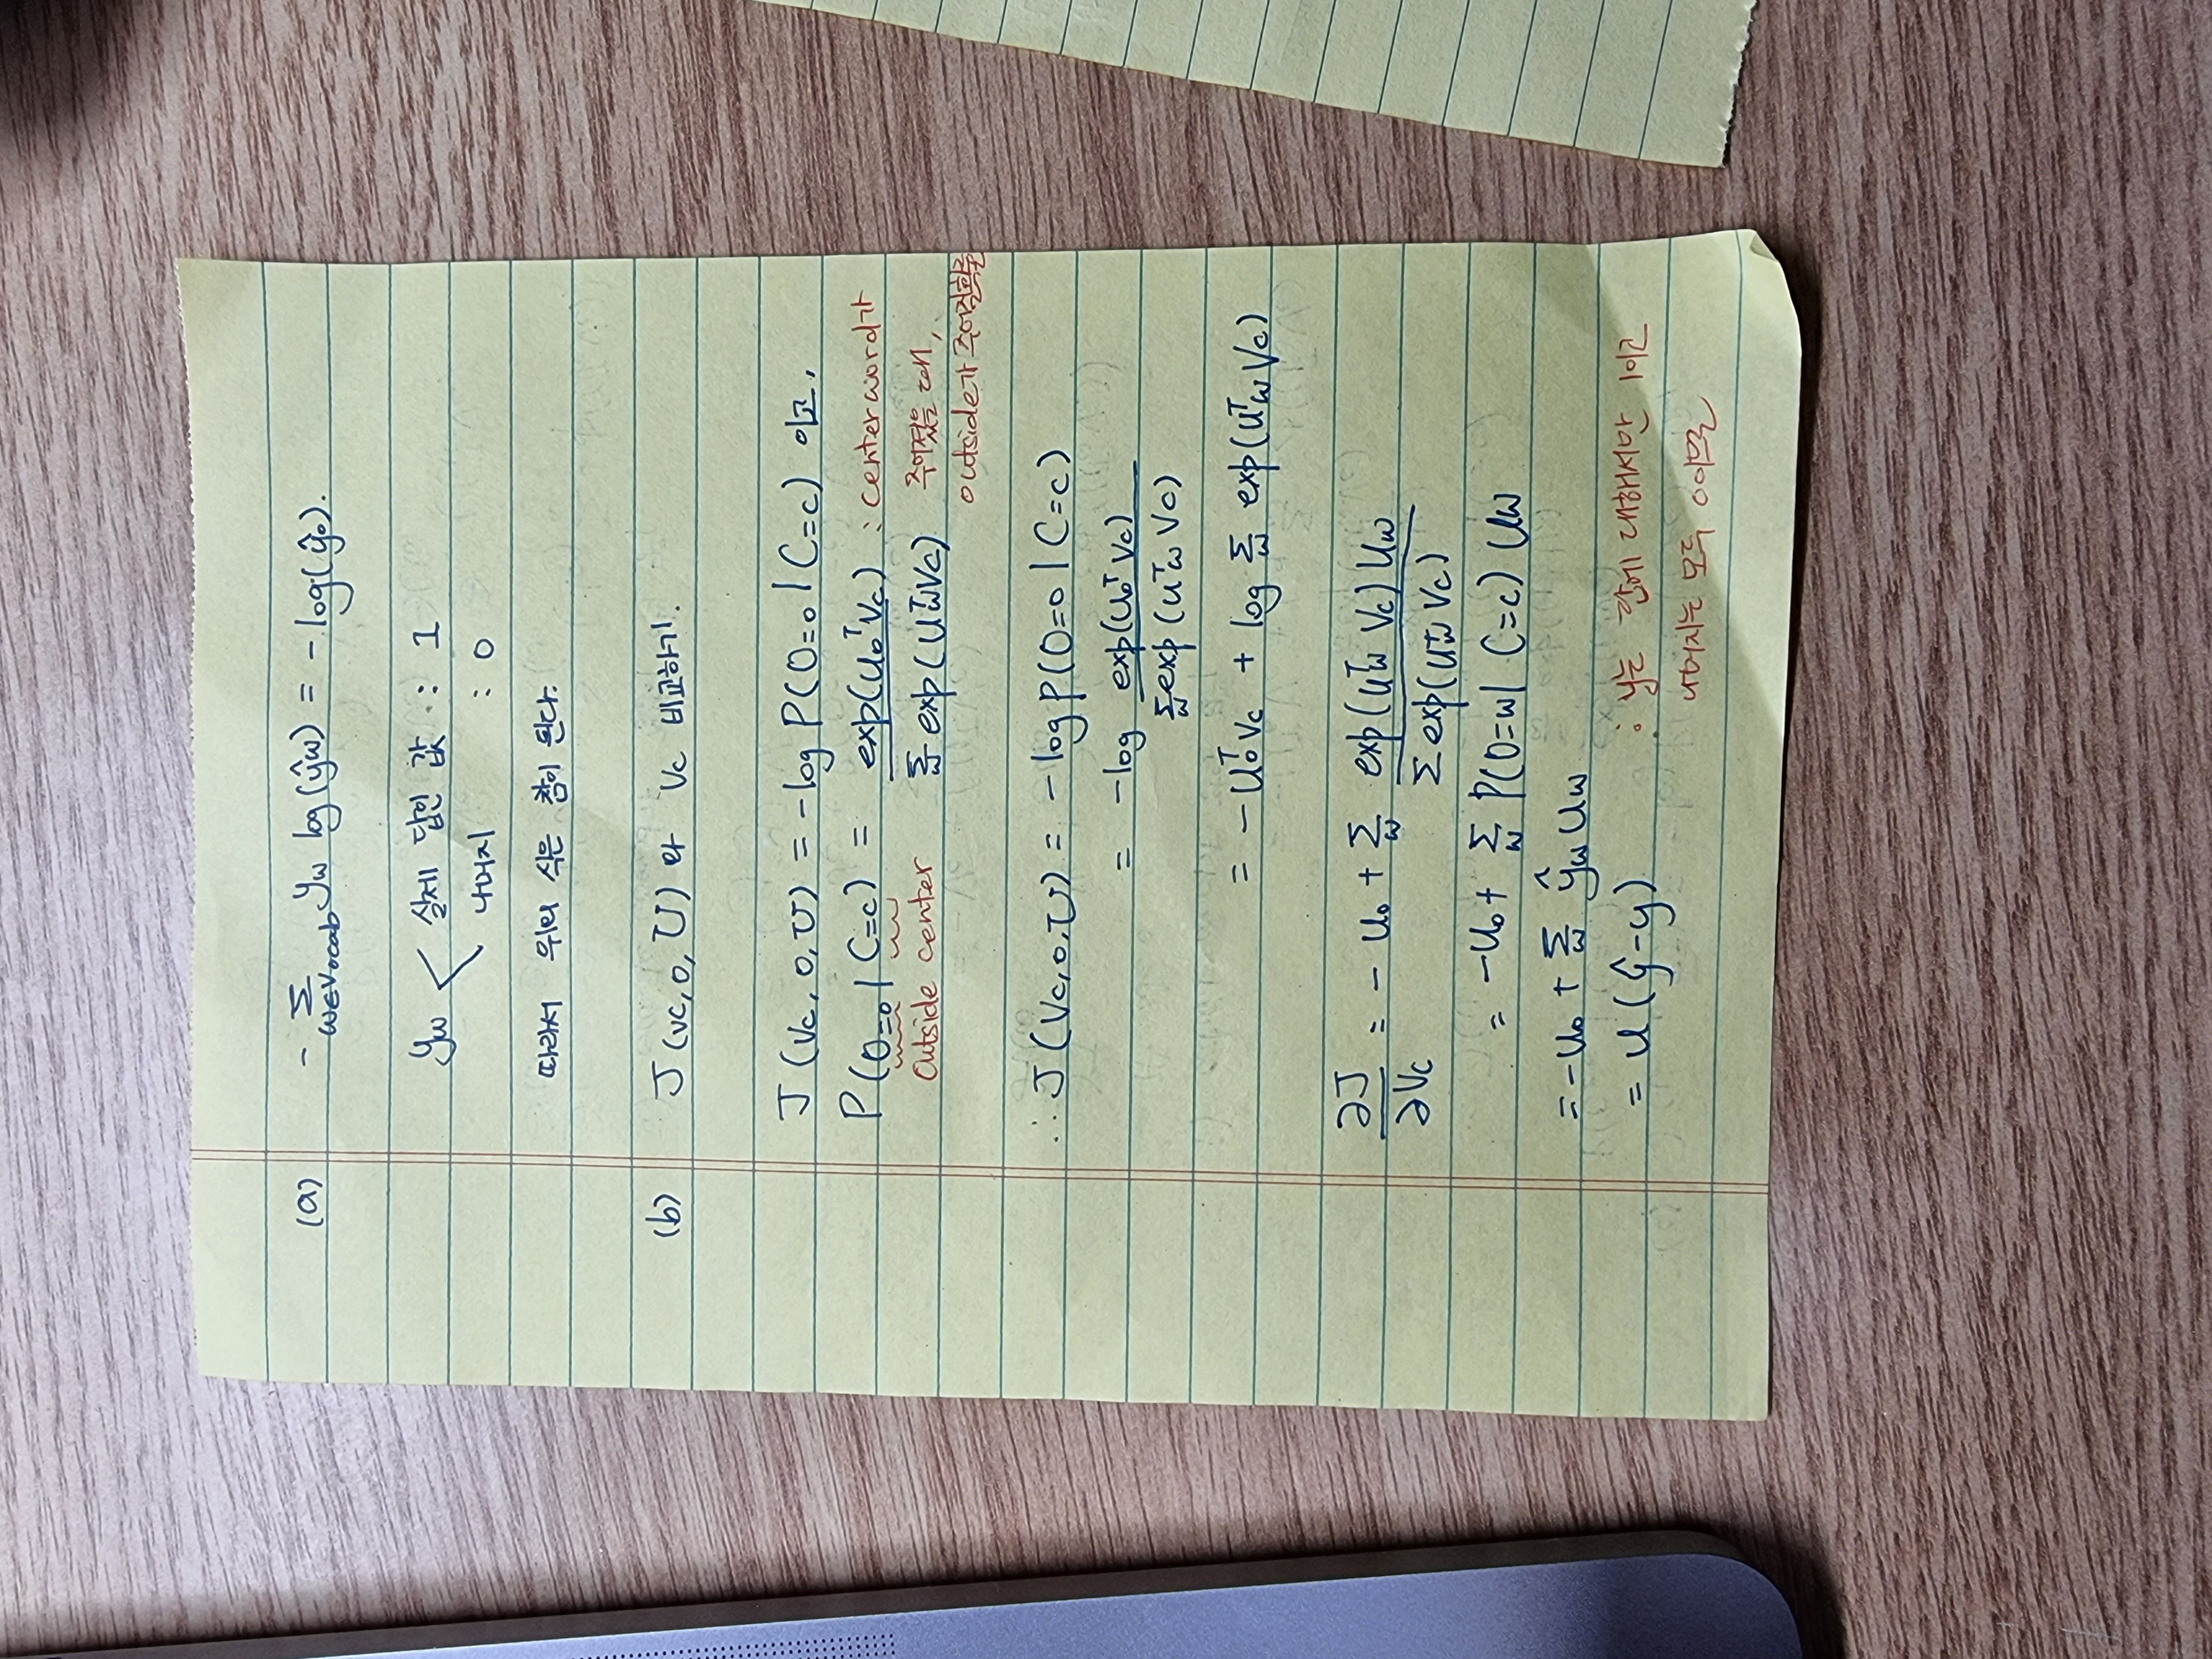 (a) - Σ_{w∈Vocab} y_w log(ŷ_w) = -log(ŷ_o).
y_w < 실제 답인 값 : 1
나머지 : 0
따라서 위의 식은 참이 된다.
(b) J(v_c, o, U) 와 v_c 비교하기.
J(v_c, o, U) = -log P(O=o | C=c) 이고,
P(O=o | C=c) = exp(u_o^T v_c) / Σ_w exp(u_w^T v_c) : center word가
outside center 주어졌을 때,
outside가 주어질 확률
∴ J(v_c, o, U) = -log P(O=o | C=c)
= -log exp(u_o^T v_c) / Σ_w exp(u_w^T v_c)
= -u_o^T v_c + log Σ_w exp(u_w^T v_c)
∂J/∂v_c = -u_o + Σ_w exp(u_w^T v_c) u_w / Σ exp(u_w^T v_c)
= -u_o + Σ_w P(O=w | C=c) u_w
= -u_o + Σ_w ŷ_w u_w
= u(ŷ-y) : y는 답에 대해서만 1이고
나머지는 모두 0이므로